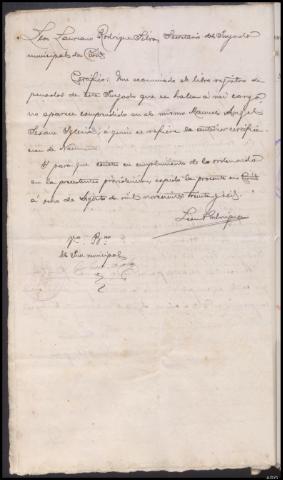 Don Laureano Rodrigue Silva, Secretario del Juzgado
municipal de
Certifico: Que examinado el libro registro de
penados de este Juzgado que se halla a mi cargo
no aparece comprendido en el mismo Manuel Angel
Seoane Iglesias, a quien se refiere la anterior certifica-
cion de
Y para que conste en cumplimiento de lo ordenado
en la precedente providencia, expido la presente en
a once de Agosto de mil novecientos treinta y seis.
Vto. Bno.
El Juez municipal